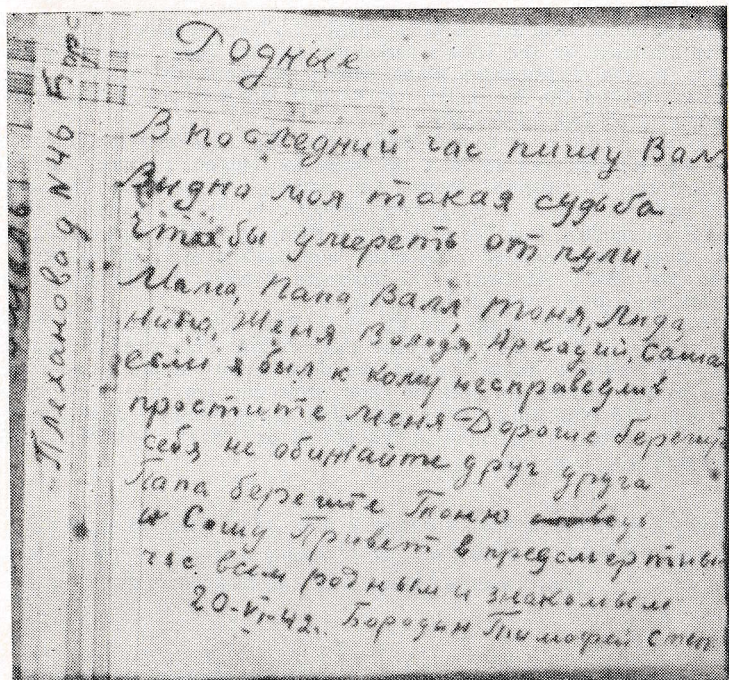 Родные
В последний час пишу Вам
Видно моя такая судьба
чтобы умереть от пули.
Мама, Папа, Валя, Тоня, Лида,
Нина, Женя Володя, Аркадий, Саша
если я был к кому несправедлив
простите меня Дорогие берегите
себя не обижайте друг друга
Папа берегите Тоню
и Сашу Привет в предсмертный
час всем родным и знакомым
20-VI-42. Бородин Тимофей Степ
Плеханова д N 46